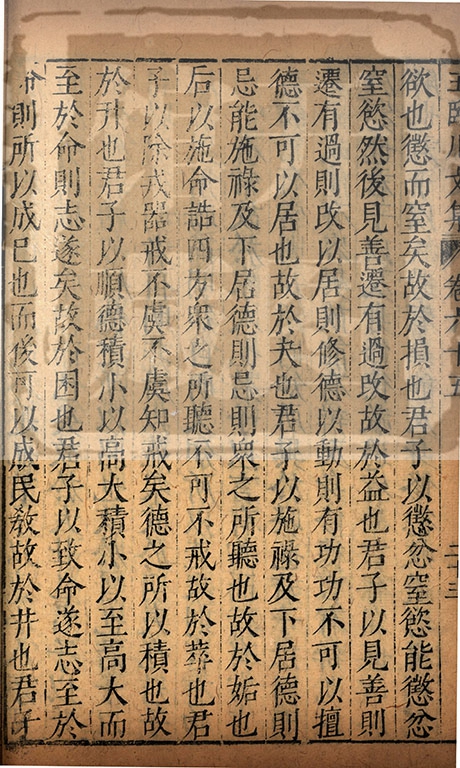 王臨川文集 卷六十五 二十三
欲也懲而窒矣故於損也君子以懲忿窒慾能懲忿
窒慾然後見善遷有過改故於益也君子以見善則
遷有過則改以居則修德以動則有功功不可以擅
德不可以居也故於夬也君子以施祿及下居德則
忌能施祿及下居德則忌則衆之所聽也故於姤也
后以施命誥四方衆之所聽不可不戒故於萃也君
子以除戎器戒不虞不虞知戒矣德之所以積也故
於升也君子以順德積小以高大積小以至高大而
至於命則志遂矣故於困也君子以致命遂志至於
命則所以成巳也而後可以成民敎故於井也君子